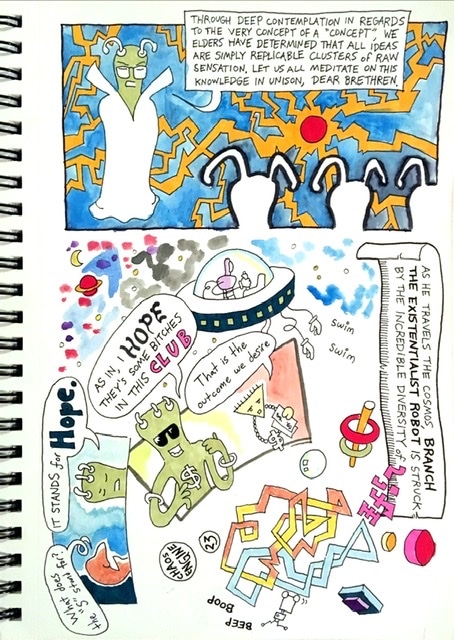 THROUGH DEEP CONTEMPLATION IN REGARDS
TO THE VERY CONCEPT OF A "CONCEPT", WE
ELDERS HAVE DETERMINED THAT ALL IDEAS
ARE SIMPLY REPLICABLE CLUSTERS OF RAW
SENSATION. LET US ALL MEDITATE ON THIS
KNOWLEDGE IN UNISON, DEAR BRETHREN.
AS HE TRAVELS THE COSMOS, BRANCH
THE EXISTENTIALIST ROBOT IS STRUCK
BY THE INCREDIBLE DIVERSITY OF
swim
swim
What does
the "S" stan' fr?
IT STANDS for Hope.
AS IN, I HOPE
THEY'S SOME BITCHES
IN THIS CLUB
That is the
outcome we desire
$
CHAOS
ENGINE
23
BEEP
BOOP